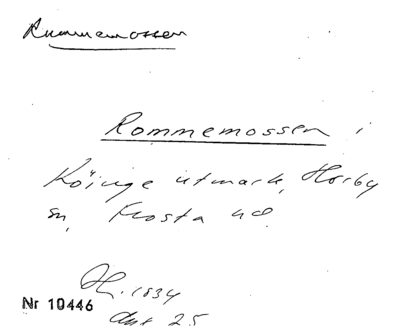 Rummemossen
Rommemossen i
Köinge utmark, Hörby
sn, Frosta hd.
H. 1834
Nr 10446
akt 25